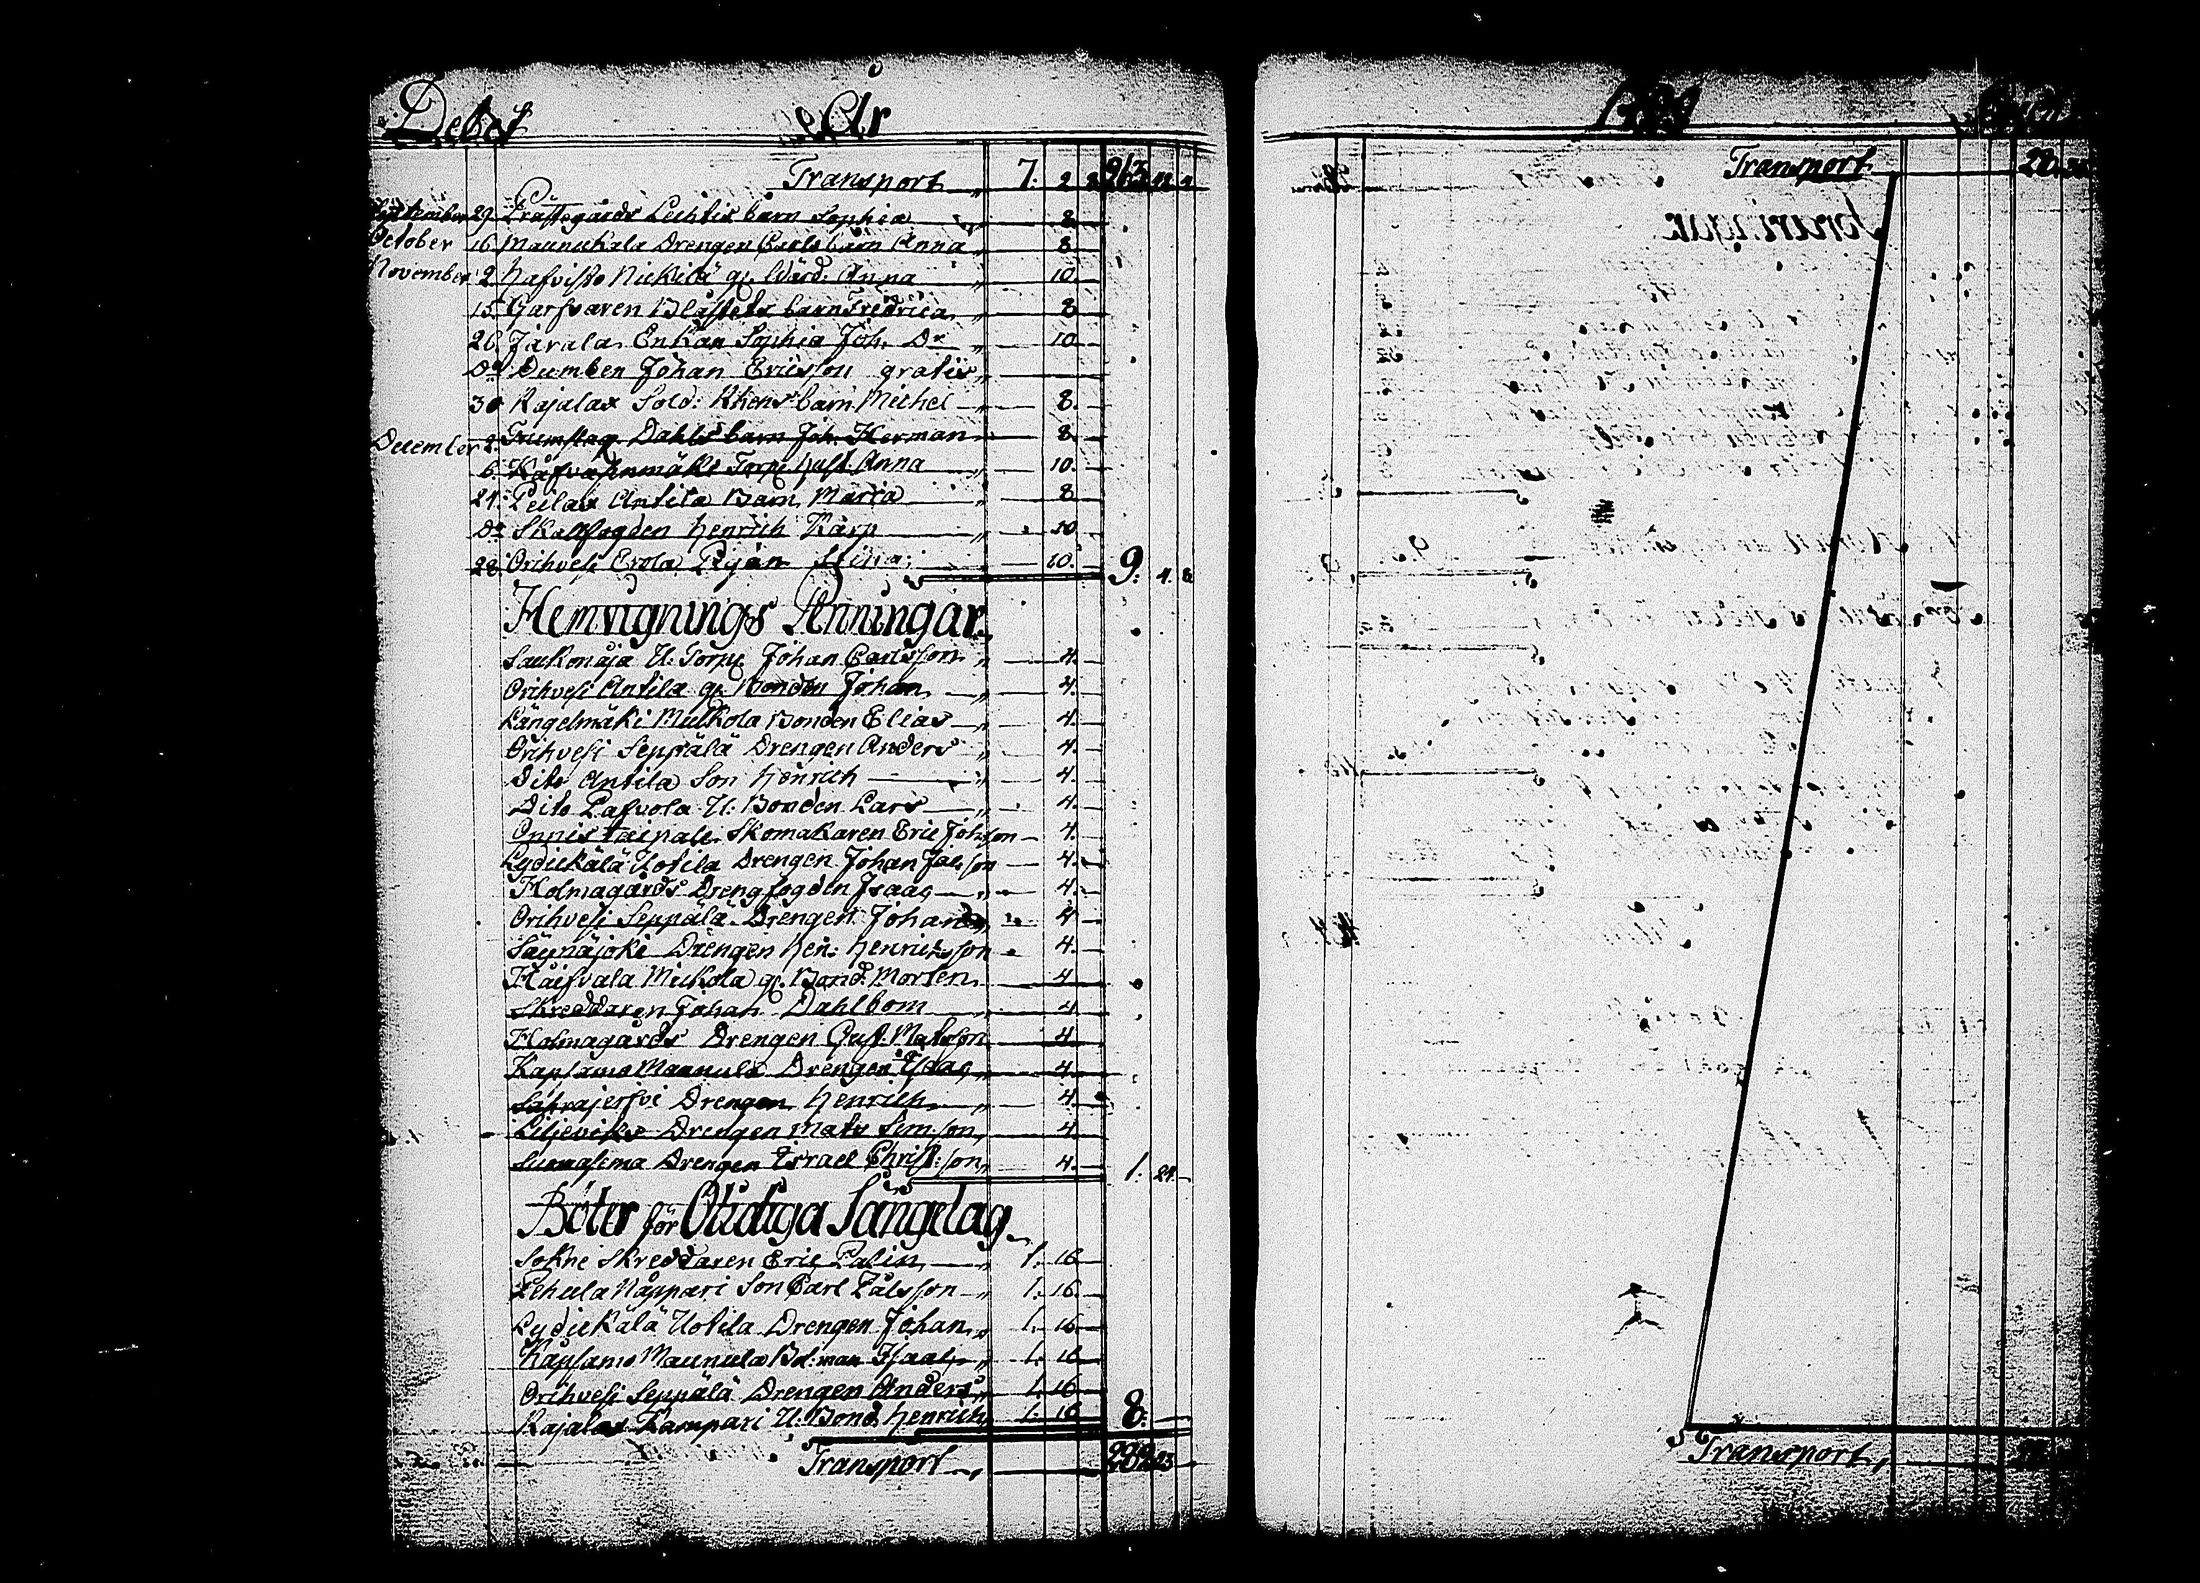 Debet År
Transport „ 7. 2 2 213 12
September 29 Prästegårds Lechtis barn Sophia „ 8
October 16 Maunukala Drengen Carls barn Anna 8
November 2 Hafvisto Nickilä gl. Wärd: Anna „ 10.
15 Garfvaren Blåfields barn Fredrica 8
26 Järala Enkan Sophia Joh. Dr „ 10
Do Dumben Johan Ericsson gratiis „
30 Rajalax Sold: Khens barn Michel „ 8.
December 2 Trumslag. Dahls barn Joh. Herman 8
6. Torp. Hust. Anna „ 10.
24. Peilax Antila Barn Maria „ 8
Do Skallfogden Henrich Karp „ 10
28. Orihvesi Erola Pigan Stina 10. 9. 4. 8
Hemvignings Penningar
Saukonåja U. Torp. Johan Carlsson „ 4.
Orihvesi Antila gl. Bonden Johan „ 4.
Längelmäki Mickola Bonden Elias „ 4.
Orihvesi Seppälä Drengen Anders „ 4.
Dito Antila Son Henrich „ 4.
Dito Pafvola U. Bonden Lars „ 4.
Onnistaipale Skomakaren Eric Johsson 4.
Lydickälä Uotila Drengen Johan Jac.son 4.
Holmagårds Drengfogden Isaac „ 4.
Orihvesi Seppälä Drengen Johan „ 4
Säynäjoki Drengen Hen: Henricksson 4.
Haifvala Mickola gl. Bond. Morten 4
Skreddaren Johan Dahlbom „ 4
Holmagårds Drengen Gust. Matsson 4
Kapsamo Maunula Drengen Isaac „ 4
Drengen Henrich „ 4
Liljeviks Drengen Mats Sim.son „ 4.
Drengen Israel Christ:son „ 4. 1. 24.
Böter för Otidiga Sängelag
Sokne Skreddaren Eric Palin „ 1. 16
Näppari Son Carl Pålsson „ 1. 16.
Lydickälä Uotila Drengen Johan „ 1. 16.
Kapsamo Maunula Bol:man Isaac „ 1. 16
Orihvesi Seppälä Drengen Anders „ 1. 16
Rajalax Kampari U. Bond. Henrich 1. 16 8.
Transport „ 23
Transport
Transport „